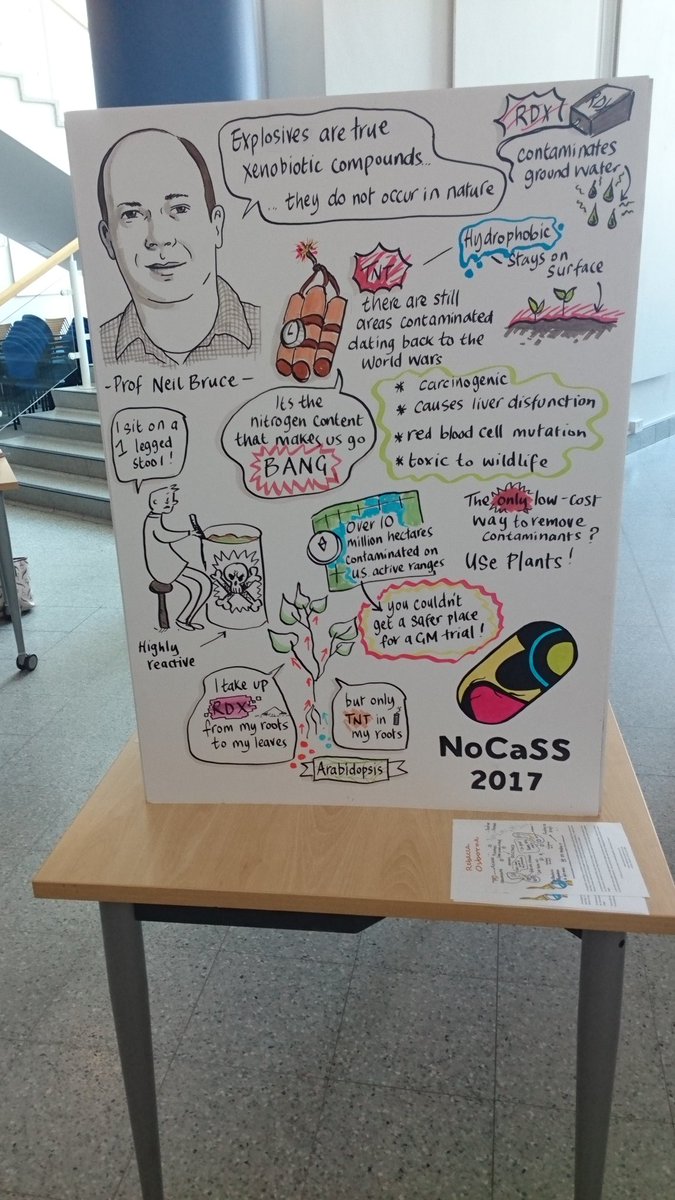 Explosives are true
xenobiotic compounds...
... they do not occur in nature
RDX
contaminates
ground water
- Prof Neil Bruce -
TNT
Hydrophobic
Stays on
surface
there are still
areas contaminated
dating back to the
World Wars
Its the
nitrogen content
that makes us go
BANG
* carcinogenic
* causes liver disfunction
* red blood cell mutation
* toxic to wildlife
I sit on a
1 legged
stool!
Highly
reactive
Over 10
million hectares
contaminated on
US active ranges
you couldn't
get a safer place
for a GM trial!
The only low-cost
way to remove
contaminants?
Use Plants!
I take up
RDX
from my roots
to my leaves
but only
TNT in
my roots
Arabidopsis
NoCaSS
2017
Rebecca
Osborne